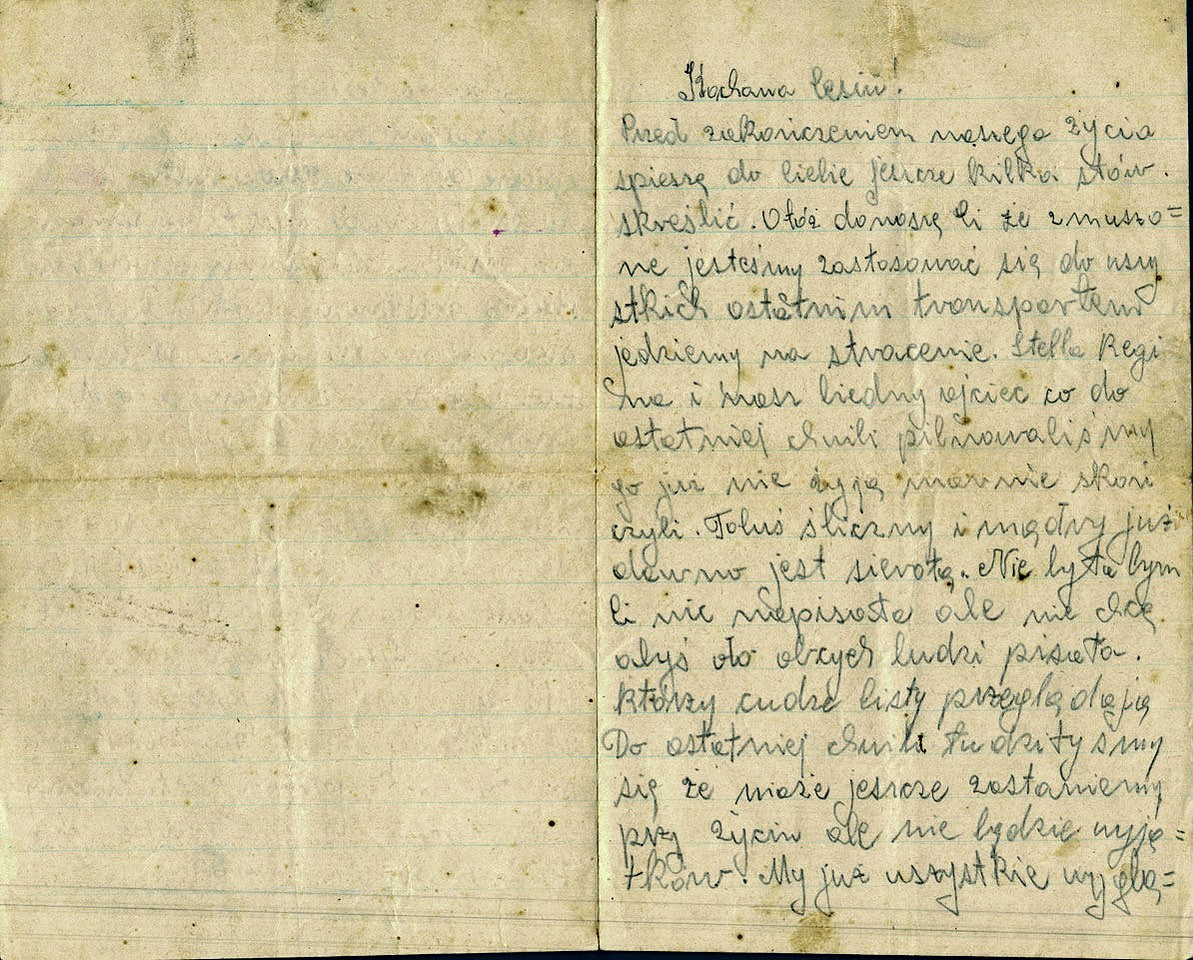 Kochana Cesiu!
Przed zakończeniem naszego życia
spieszę do Ciebie jeszcze kilka słów.
skreślić. Otóż donoszę Ci że zmuszo=
ne jesteśmy zastosować się do wszy
stkich ostatnim transportem
jedziemy na stracenie. Stella Regi
na i nasz biedny ojciec co do
ostatniej chwili pilnowaliśmy
go już nie żyją marnie skoń
czyli. Toluś śliczny i mądry już
dawno jest sierotą. Nie była bym
Ci nic napisała ale nie chcę
abyś do obcych ludzi pisała.
którzy cudze listy przeglądają
Do ostatniej chwili łudziłyśmy
się że może jeszcze zostaniemy
przy życiu ale nie będzie wyją=
tków. My już wszystkie wyglą=